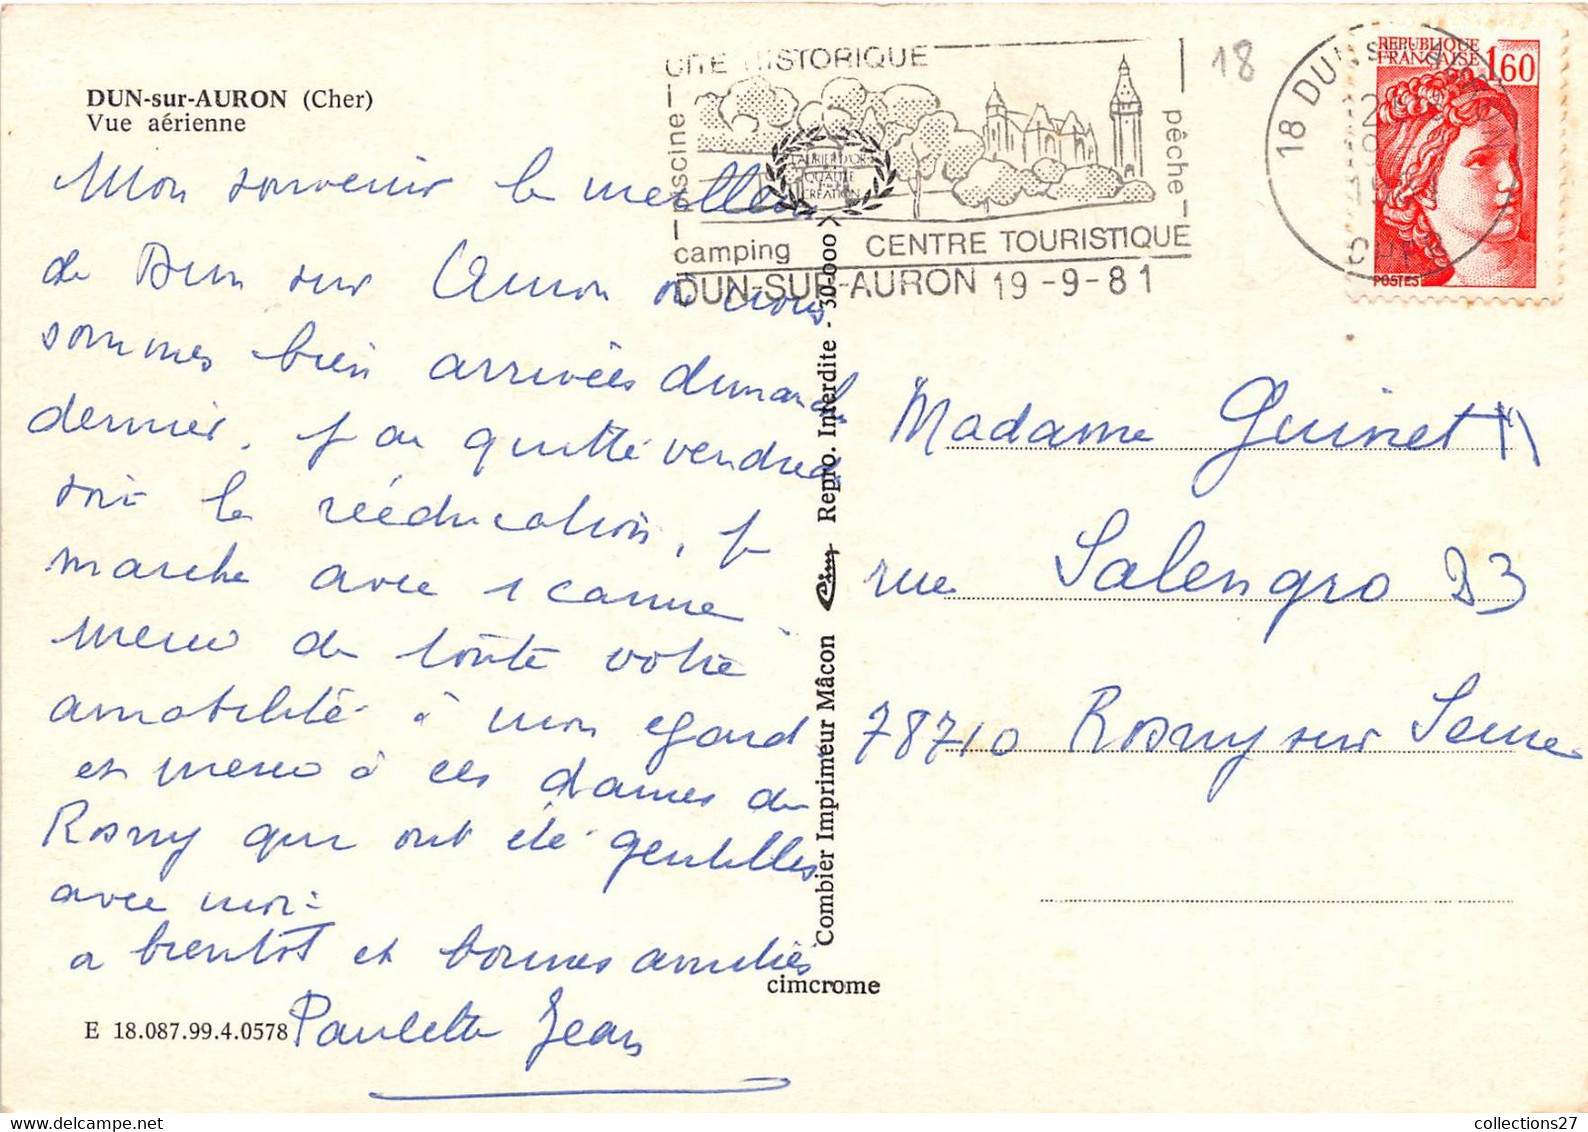 DUN-sur-AURON (Cher)
Vue aérienne
Mon souvenir le meilleur
de Dun sur Auron où nous
sommes bien arrivées dimanche
dernier, j'ai quitté vendredi
soir la rééducation, je
marche avec 1 canne
merci de toute votre
amabilité à mon égard
et merci à ces dames de
Rosny qui ont été gentilles
avec moi
a bientot et bonnes amitiés
Paulette Jean
E 18.087.99.4.0578
CITE HISTORIQUE
piscine
pêche
camping
CENTRE TOURISTIQUE
DUN-SUR-AURON 19-9-81
LAURIER D'OR
QUALITÉ
CRÉATION
18
18 DUN S AURON
CHER
REPUBLIQUE
FRANÇAISE
1,60
POSTES
Combier Imprimeur Mâcon Cim Repro. Interdite - 30-000
cimcrome
Madame Guinet
rue Salengro 23
78710 Rosny sur Seine
collections27